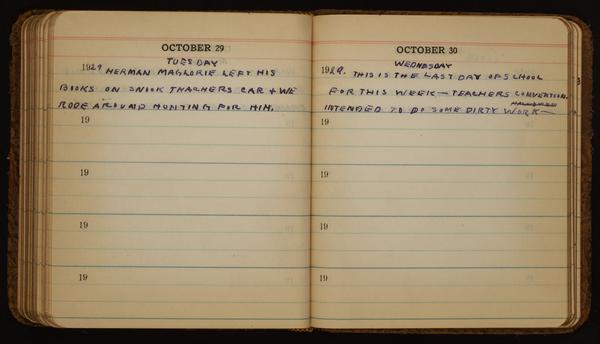 OCTOBER 29
TUESDAY
1929 HERMAN MAGLORIE LEFT HIS
BOOKS ON SNOOK THACHERS CAR + WE
RODE AROUND HUNTING FOR HIM.
19
19
19
19
OCTOBER 30
WEDNESDAY
1929. THIS IS THE LAST DAY OF SCHOOL
FOR THIS WEEK — TEACHERS CONVENTION.
INTENDED TO DO SOME DIRTY WORK —
19
19
19
19